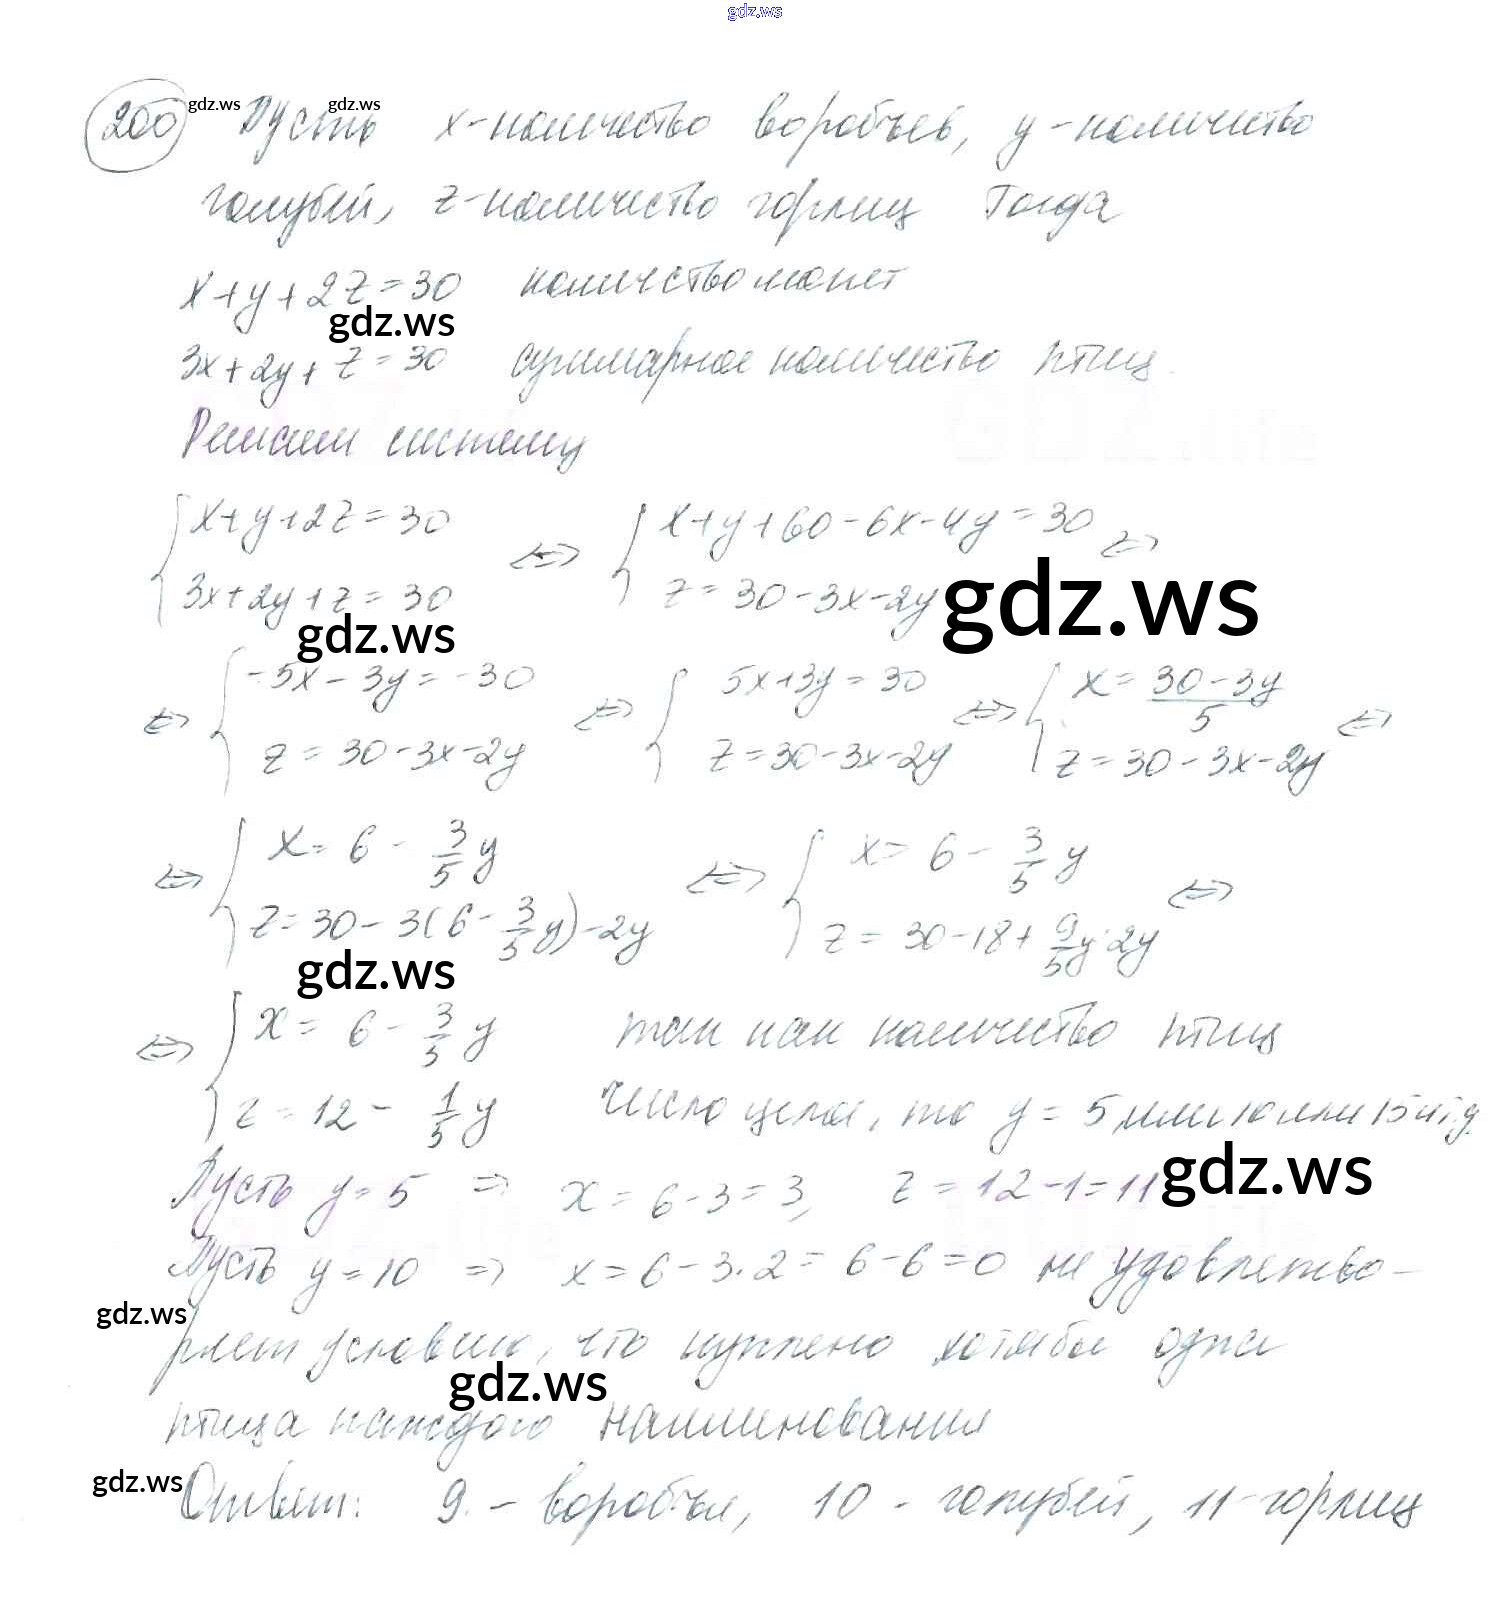 gdz.ws
200 gdz.ws gdz.ws Пусть x - количество воробьев, y - количество
голубей, z - количество горлиц Тогда
x + y + 2z = 30 количество монет
gdz.ws
3x + 2y + z = 30 суммарное количество птиц.
Решаем систему
{ x + y + 2z = 30 <=> { x + y + 60 - 6x - 4y = 30 <=>
{ 3x + 2y + z = 30 { z = 30 - 3x - 2y
gdz.ws gdz.ws
{ -5x - 3y = -30 { 5x + 3y = 30 { x = (30 - 3y)/5
<=> <=> <=> <=>
{ z = 30 - 3x - 2y { z = 30 - 3x - 2y { z = 30 - 3x - 2y
{ x = 6 - 3/5 y { x = 6 - 3/5 y
<=> <=> <=>
{ z = 30 - 3(6 - 3/5 y) - 2y { z = 30 - 18 + 9/5 y - 2y
gdz.ws
<=> { x = 6 - 3/5 y так как количество птиц
{ z = 12 - 1/5 y число целое, то y = 5 или 10 или 15 и т.д.
Пусть y = 5 => x = 6 - 3 = 3, z = 12 - 1 = 11 gdz.ws
Пусть y = 10 => x = 6 - 3 · 2 = 6 - 6 = 0 не удовлетво-
gdz.ws
ряет условию, что куплено хотя бы одна
gdz.ws
птица каждого наименования
gdz.ws
Ответ: 9 - воробья, 10 - голубей, 11 - горлиц